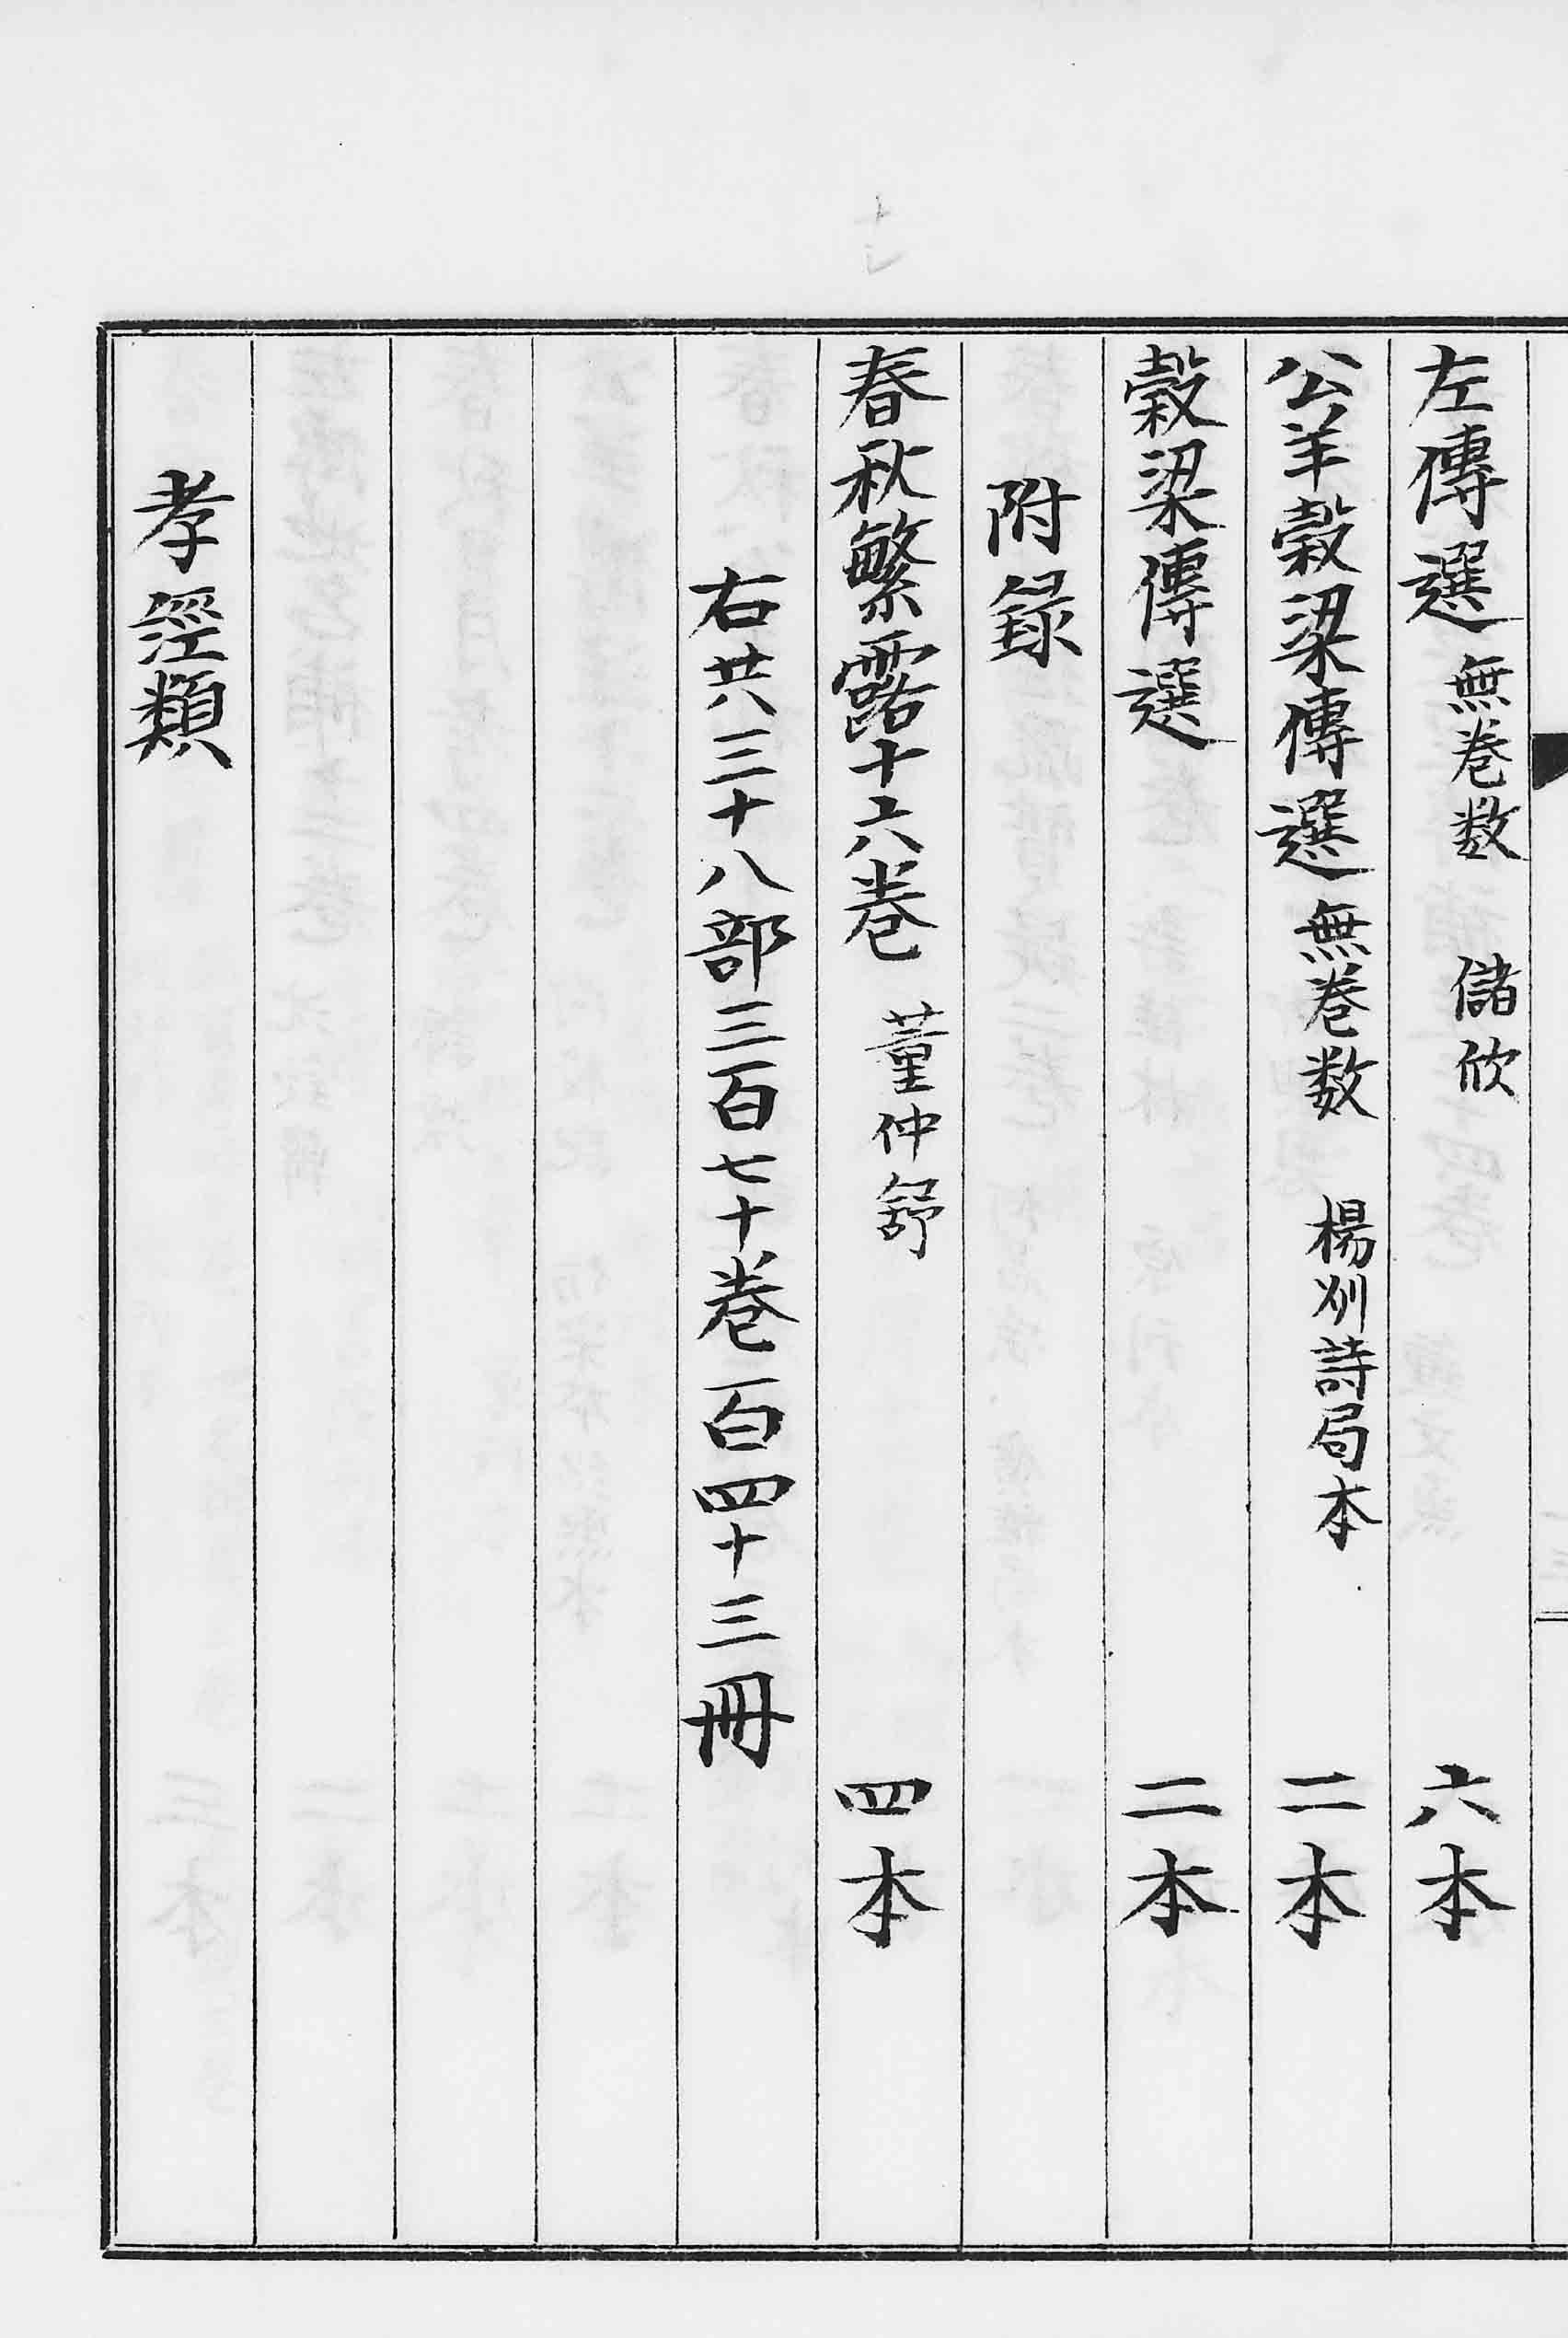 左傳選 無卷数 儲欣 六本
公羊穀梁傳選 無卷数 楊州詩局本 二本
穀梁傳選 二本
附録
春秋繁露十六卷 董仲舒 四本
右共三十八部三百七十卷百四十三冊
孝經類